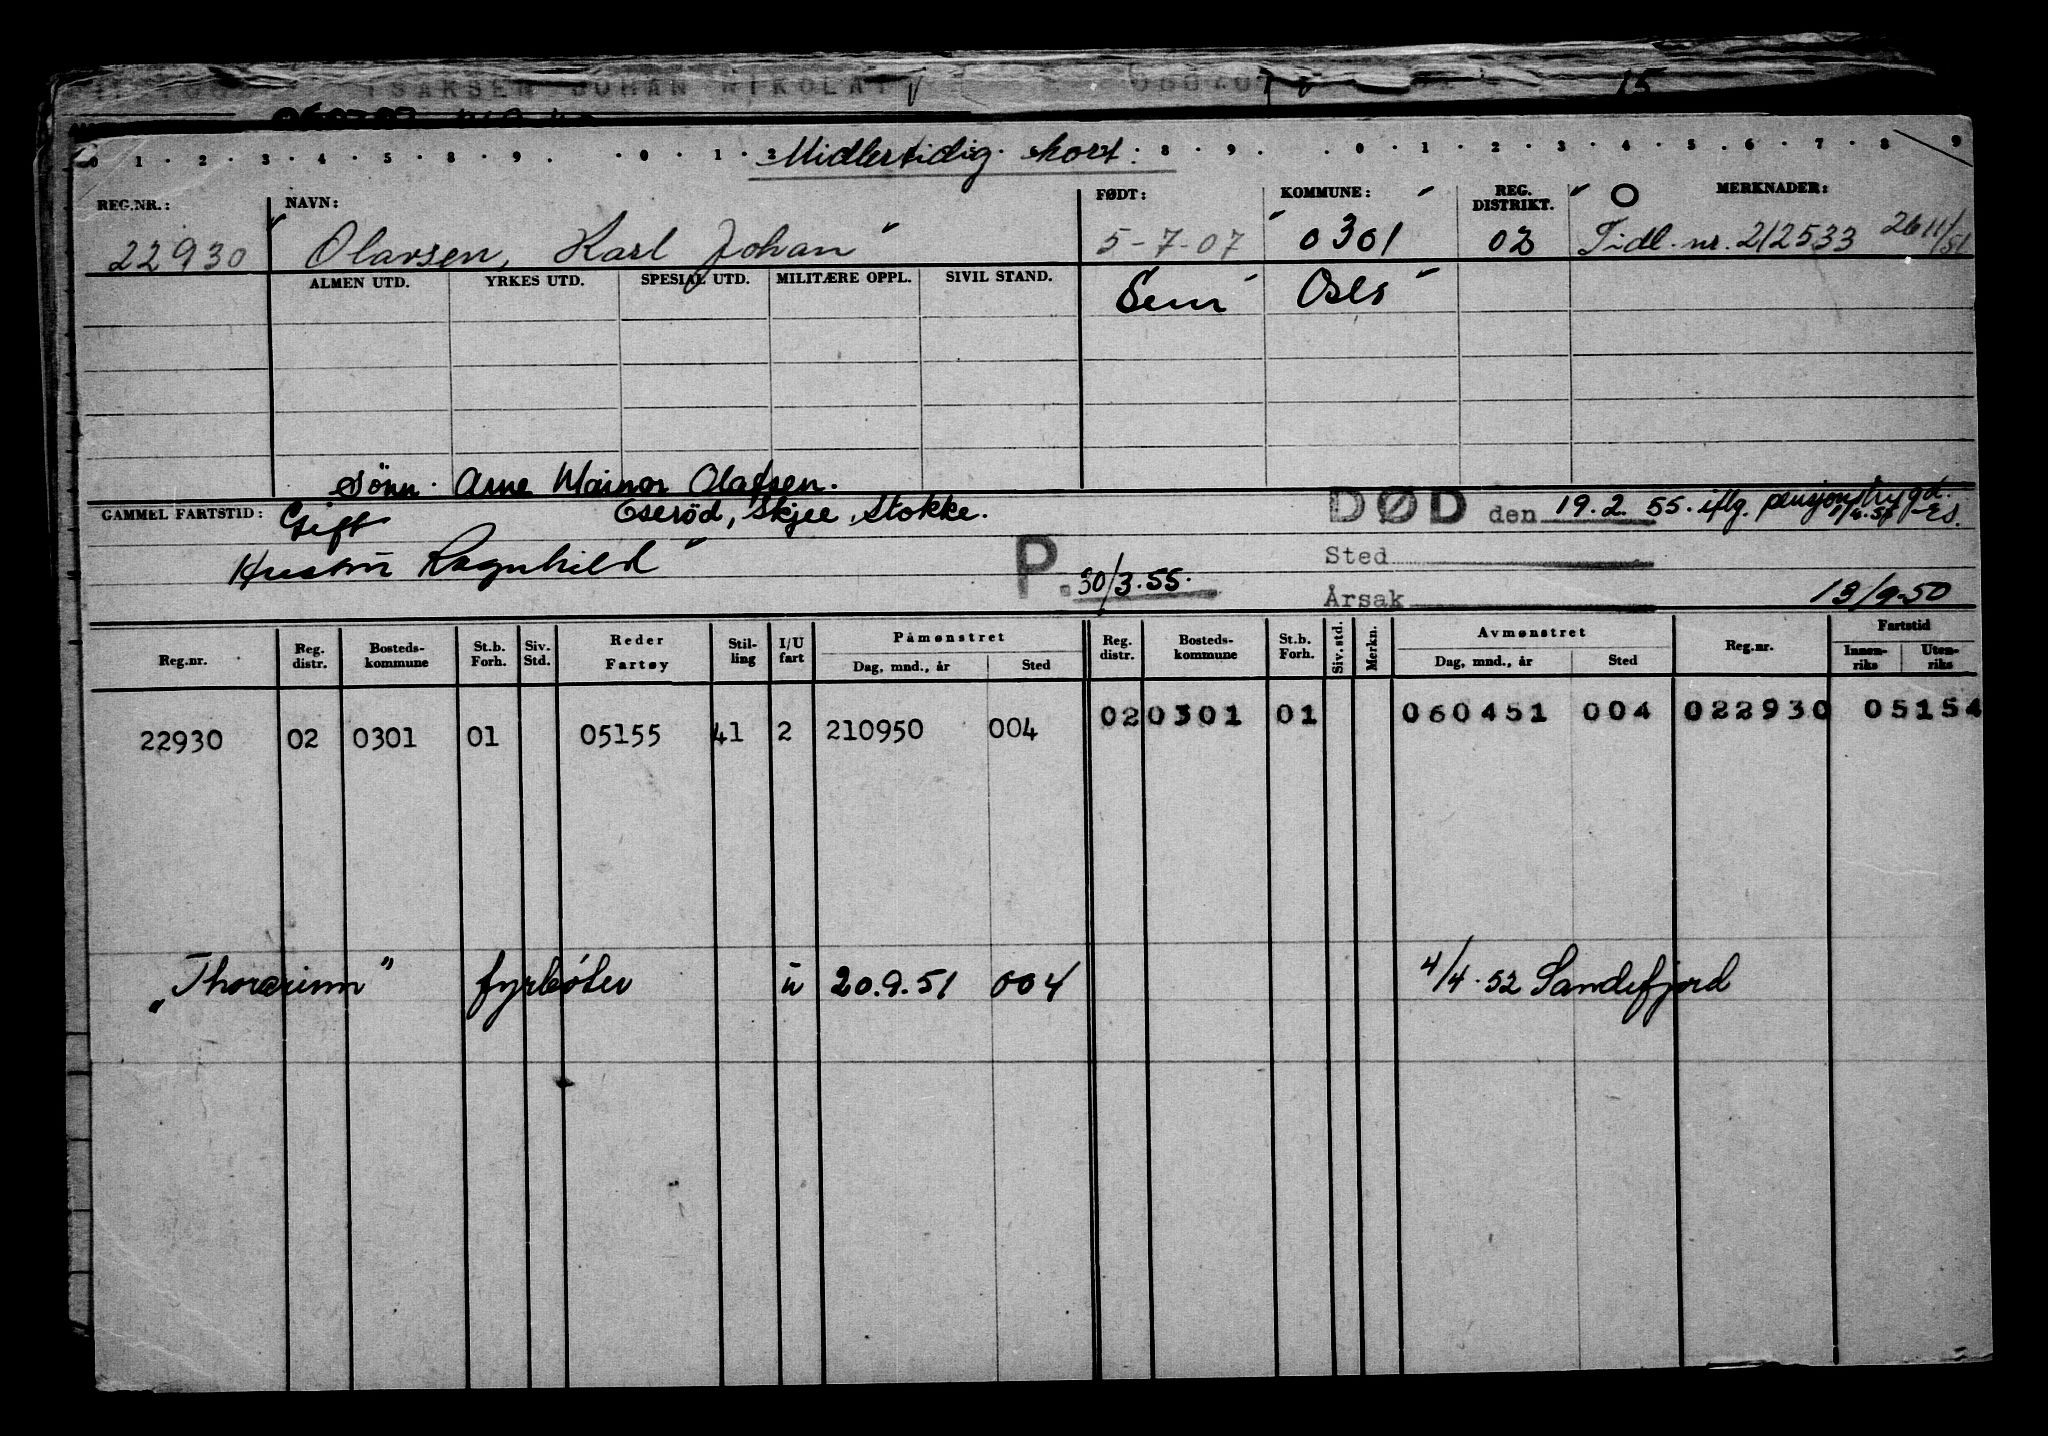 ISAKSEN JOHAN NIKOLAI
15
0 1 2 3 4 5 8 9 0 1 2 Midlertidig kort. 8 9 0 1 2 3 4 5 6 7 8 9
REG.NR.: NAVN: FØDT: KOMMUNE: REG. DISTRIKT. O MERKNADER:
22930 Olavsen, Karl Johan 5-7-07 0301 02 Tidl. nr. 212533 26/11/51
ALMEN UTD. YRKES UTD. SPESIAL UTD. MILITÆRE OPPL. SIVIL STAND. Sem Oslo
Sønn. Arne Mainor Olafsen.
GAMMEL FARTSTID: Gift Eserød, Skjee, Stokke. DØD den 19.2.55. iflg. pensjonstrygd.
Hustru Ragnhild P. 30/3.55. Sted
Årsak 13/9-50
Reg.nr. Reg. distr. Bosteds-kommune St.b. Forh. Siv. Std. Reder Fartøy Stil-ling I/U fart Påmønstret Dag, mnd., år Sted Reg. distr. Bosteds-kommune St.b. Forh. Siv. std. Merkn. Avmønstret Dag, mnd., år Sted Reg.nr. Fartstid Innen-riks Uten-riks
22930 02 0301 01 05155 41 2 210950 004 02 0301 01 060451 004 022930 05154
"Thorarinn" fyrbøter u 20.9.51 004 4/4.52 Sandefjord